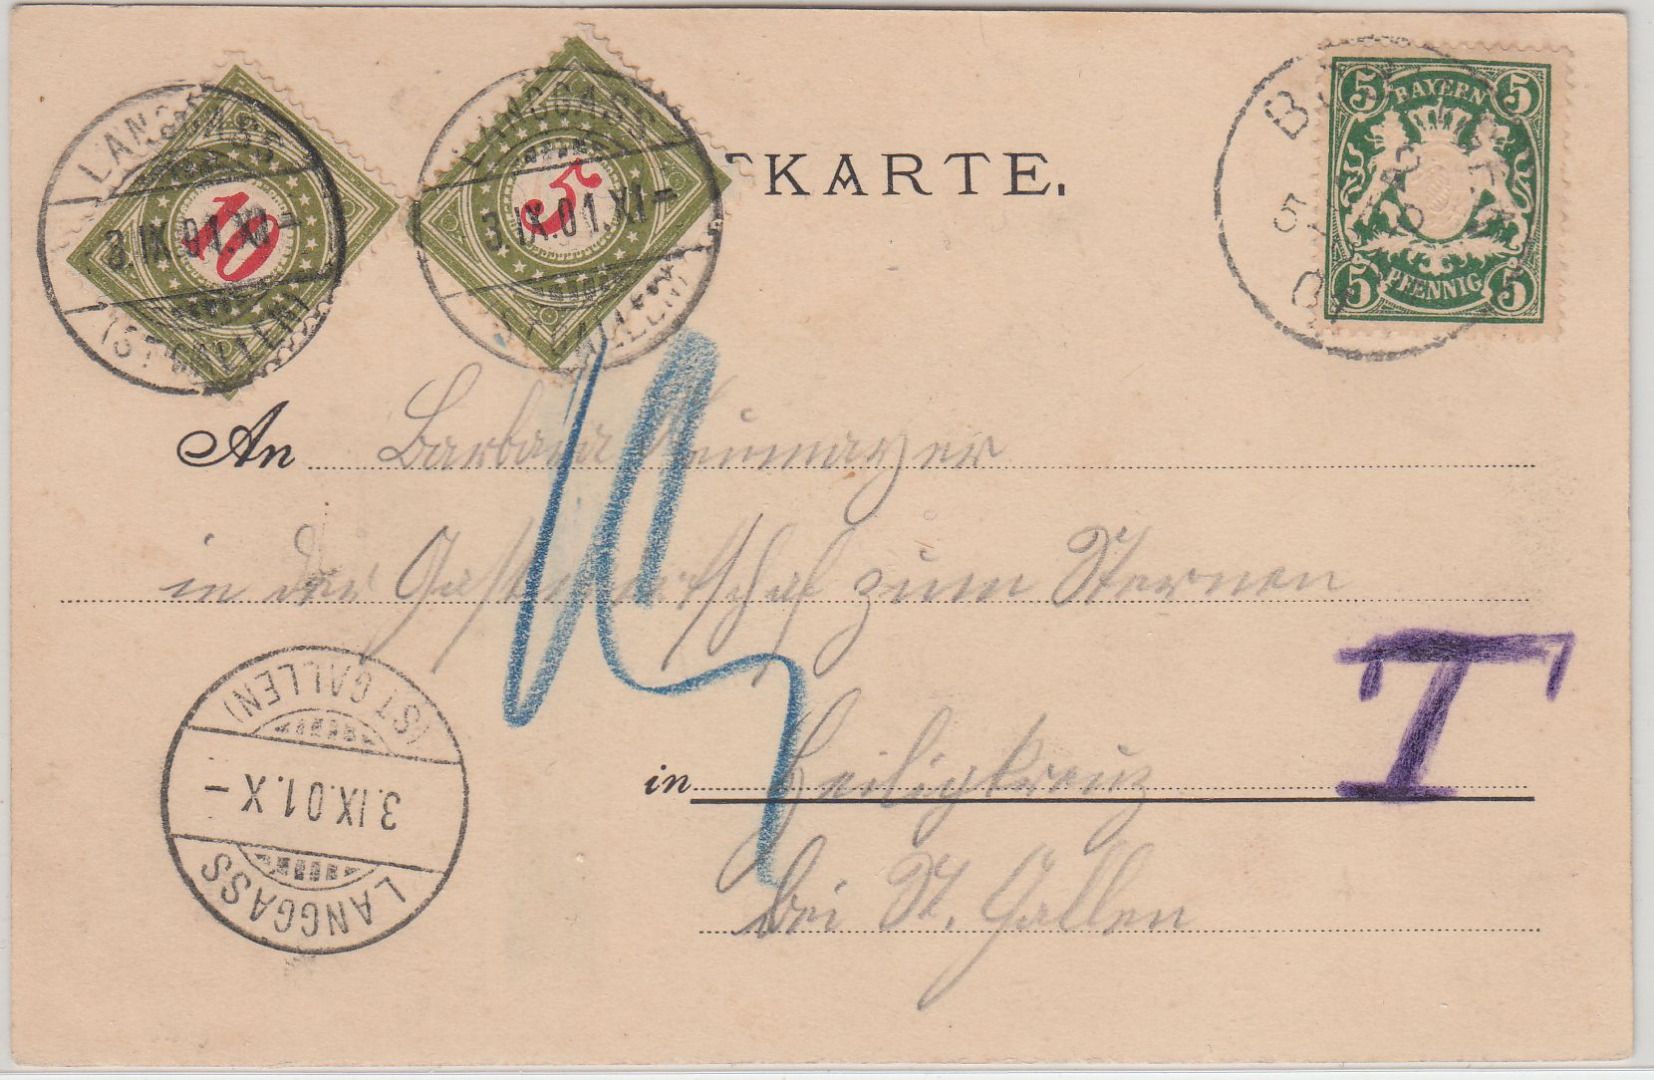 KARTE.
LANGGASS
3.IX.01.XI–
(ST.GALLEN)
10
LANGGASS
3.IX.01.XI–
(ST.GALLEN)
5
5 BAYERN 5
5 PFENNIG 5
An Barbara Neumayer
in der Gastwirtschaf zum Sternen
in Heiligkreuz
bei St. Gallen
T
15
(ST.GALLEN)
3.IX.01.X–
LANGGASS